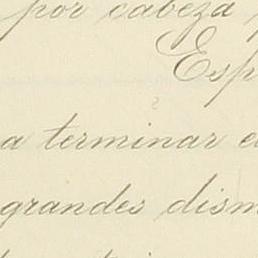 por cabeza
Esp
a terminar e
grandes dism